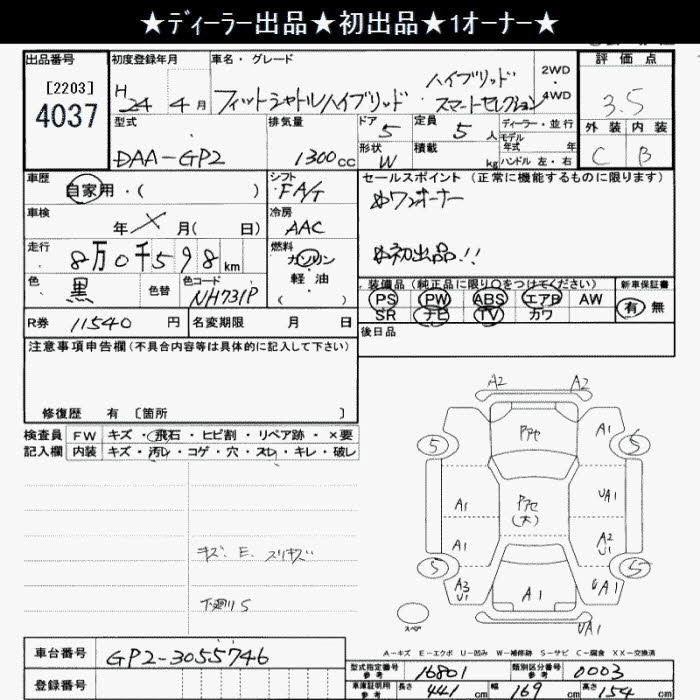 ★ディーラー出品★初出品★1オーナー★
出品番号
[2203]
4037
初度登録年月
H 24 4月
車名・グレード
フィットシャトルハイブリッド
ハイブリッド
スマートセレクション
2WD
・
4WD
評価点
3.5
外装 内装
C B
型式
DAA-GP2
排気量
1300cc
ドア
5
定員
5人
形状
W
積載
kg
ディーラー・並行
モデル
年式 年
ハンドル 左・右
車歴
自家用・( )
シフト
FA/T
セールスポイント (正常に機能するものに限ります)
ワンオーナー
初出品!!
車検
年 月( 日)
冷房
AAC
走行
8万0千598km
燃料
ガソリン
軽・油
( )
色
黒
色替
色コード
NH731P
装備品(純正品に限り○をつけてください)
PS PW ABS エアB AW
SR ナビ TV カワ
新車保証書
有 無
R券 11540円
名変期限 月 日
後日品
注意事項申告欄(不具合内容等は具体的に記入して下さい)
修復歴 有 [箇所 ]
検査員
記入欄
FW キズ・飛石・ヒビ割・リペア跡・×要
内装 キズ・汚レ・コゲ・穴・スレ・キレ・破レ
キズ、E、スリキズ
下廻りS
A2 A2
5 A1 5
Pアセ
A1
UA1
Pアセ
(大)
A1
A2
U1
5 5
A3
U1
A1
UA1
スペア
UA1
A-キズ E-エクボ U-凹み W-補修跡 S-サビ C-腐食 XX-交換済
車台番号 GP2-3055746
登録番号
型式指定番号
参考
16801
類別区分番号
参考
0003
車庫証明用
参考
長さ 441cm
幅 169cm
高さ 154cm